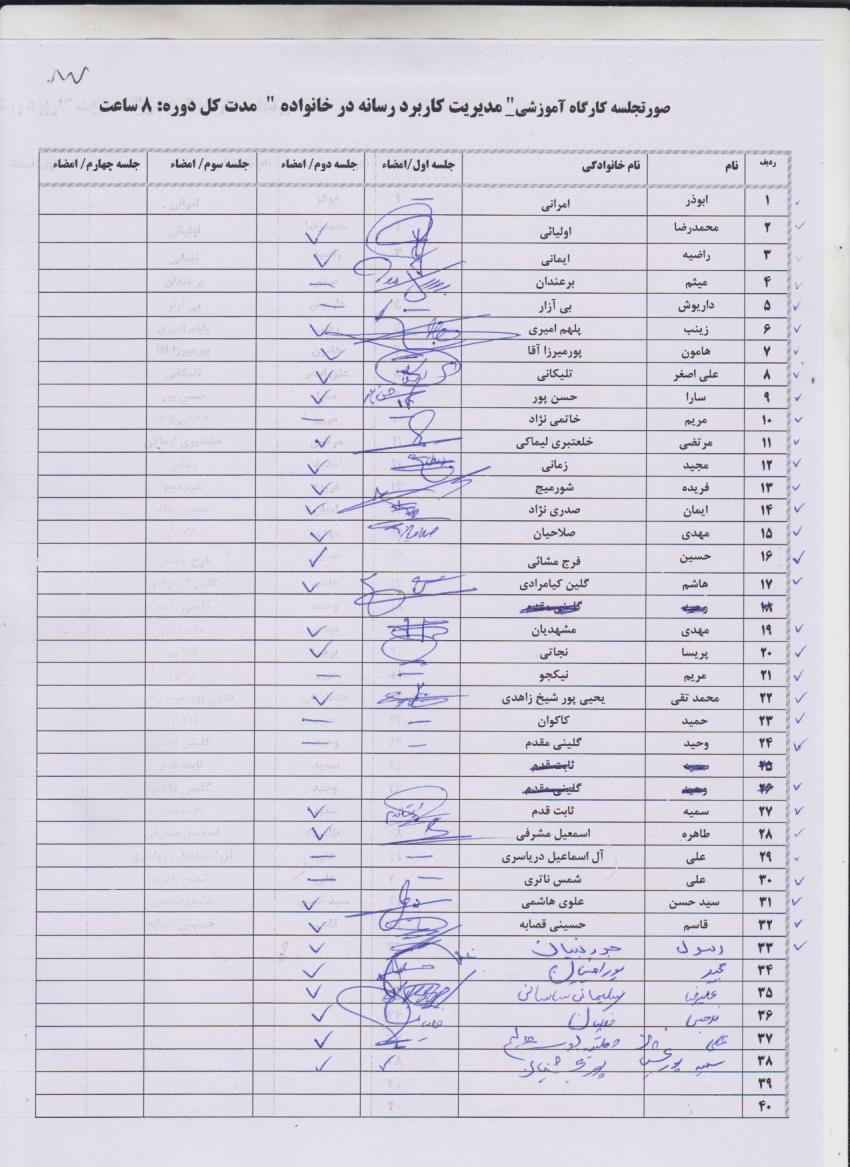 صورتجلسه کارگاه آموزشی_" مدیریت کاربرد رسانه در خانواده " مدت کل دوره: ۸ ساعت
ردیف نام نام خانوادگی جلسه اول/امضاء جلسه دوم/ امضاء جلسه سوم/ امضاء جلسه چهارم/ امضاء
۱ ابوذر امرانی
۲ محمدرضا اولیائی
۳ راضیه ایمانی
۴ میثم برعندان
۵ داریوش بی آزار
۶ زینب پلهم امیری
۷ هامون پورمیرزا آقا
۸ علی اصغر تلیکانی
۹ سارا حسن پور
۱۰ مریم خاتمی نژاد
۱۱ مرتضی خلعتبری لیماکی
۱۲ مجید زمانی
۱۳ فریده شورمیج
۱۴ ایمان صدری نژاد
۱۵ مهدی صلاحیان
۱۶ حسین فرج مشائی
۱۷ هاشم گلین کیامرادی
۱۸ وحید گلینی مقدم
۱۹ مهدی مشهدیان
۲۰ پریسا نجاتی
۲۱ مریم نیکجو
۲۲ محمد تقی یحیی پور شیخ زاهدی
۲۳ حمید کاکوان
۲۴ وحید گلینی مقدم
۲۵ سمیه ثابت قدم
۲۶ وحید گلینی مقدم
۲۷ سمیه ثابت قدم
۲۸ طاهره اسمعیل مشرفی
۲۹ علی آل اسماعیل دریاسری
۳۰ علی شمس ناتری
۳۱ سید حسن علوی هاشمی
۳۲ قاسم حسینی قصابه
۳۳ رسول
۳۴ مجید
۳۵ علیرضا سلیمانی ساسانی
۳۶
۳۷
۳۸ سمیه
۳۹
۴۰